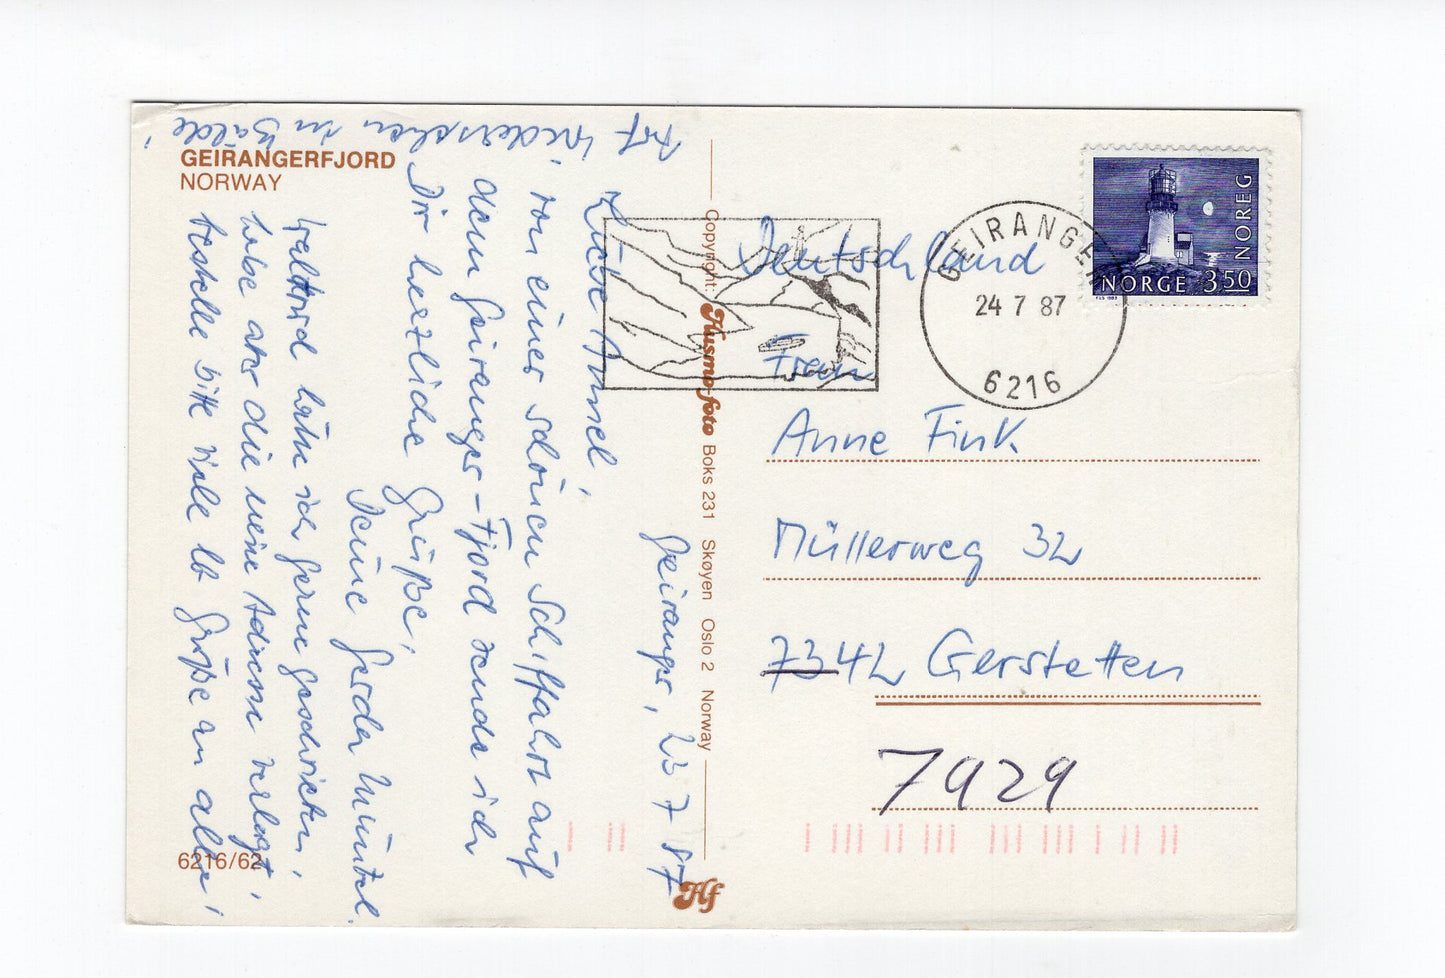 GEIRANGERFJORD
NORWAY
Auf Wiedersehen in Bälde!
Geiranger, 23 7 87
Liebe Annel,
von einer schönen Schiffahrt auf
dem Geiranger-Fjord sende ich
Dir herzliche Grüße,
Deine Gerda Müntel.
hätte ich gerne geschrieben,
habe aber die neine Adresse verlegt,
bestelle bitte viele lb Grüße an alle!
6216/62
Copyright: Husmo-foto Boks 231 Skøyen Oslo 2 Norway
Hf
GEIRANGER
24 7 87
6216
NOREG
NORGE 3.50
Deutschland
Frau
Anne Fink
Müllerweg 32
7342 Gerstetten
7929